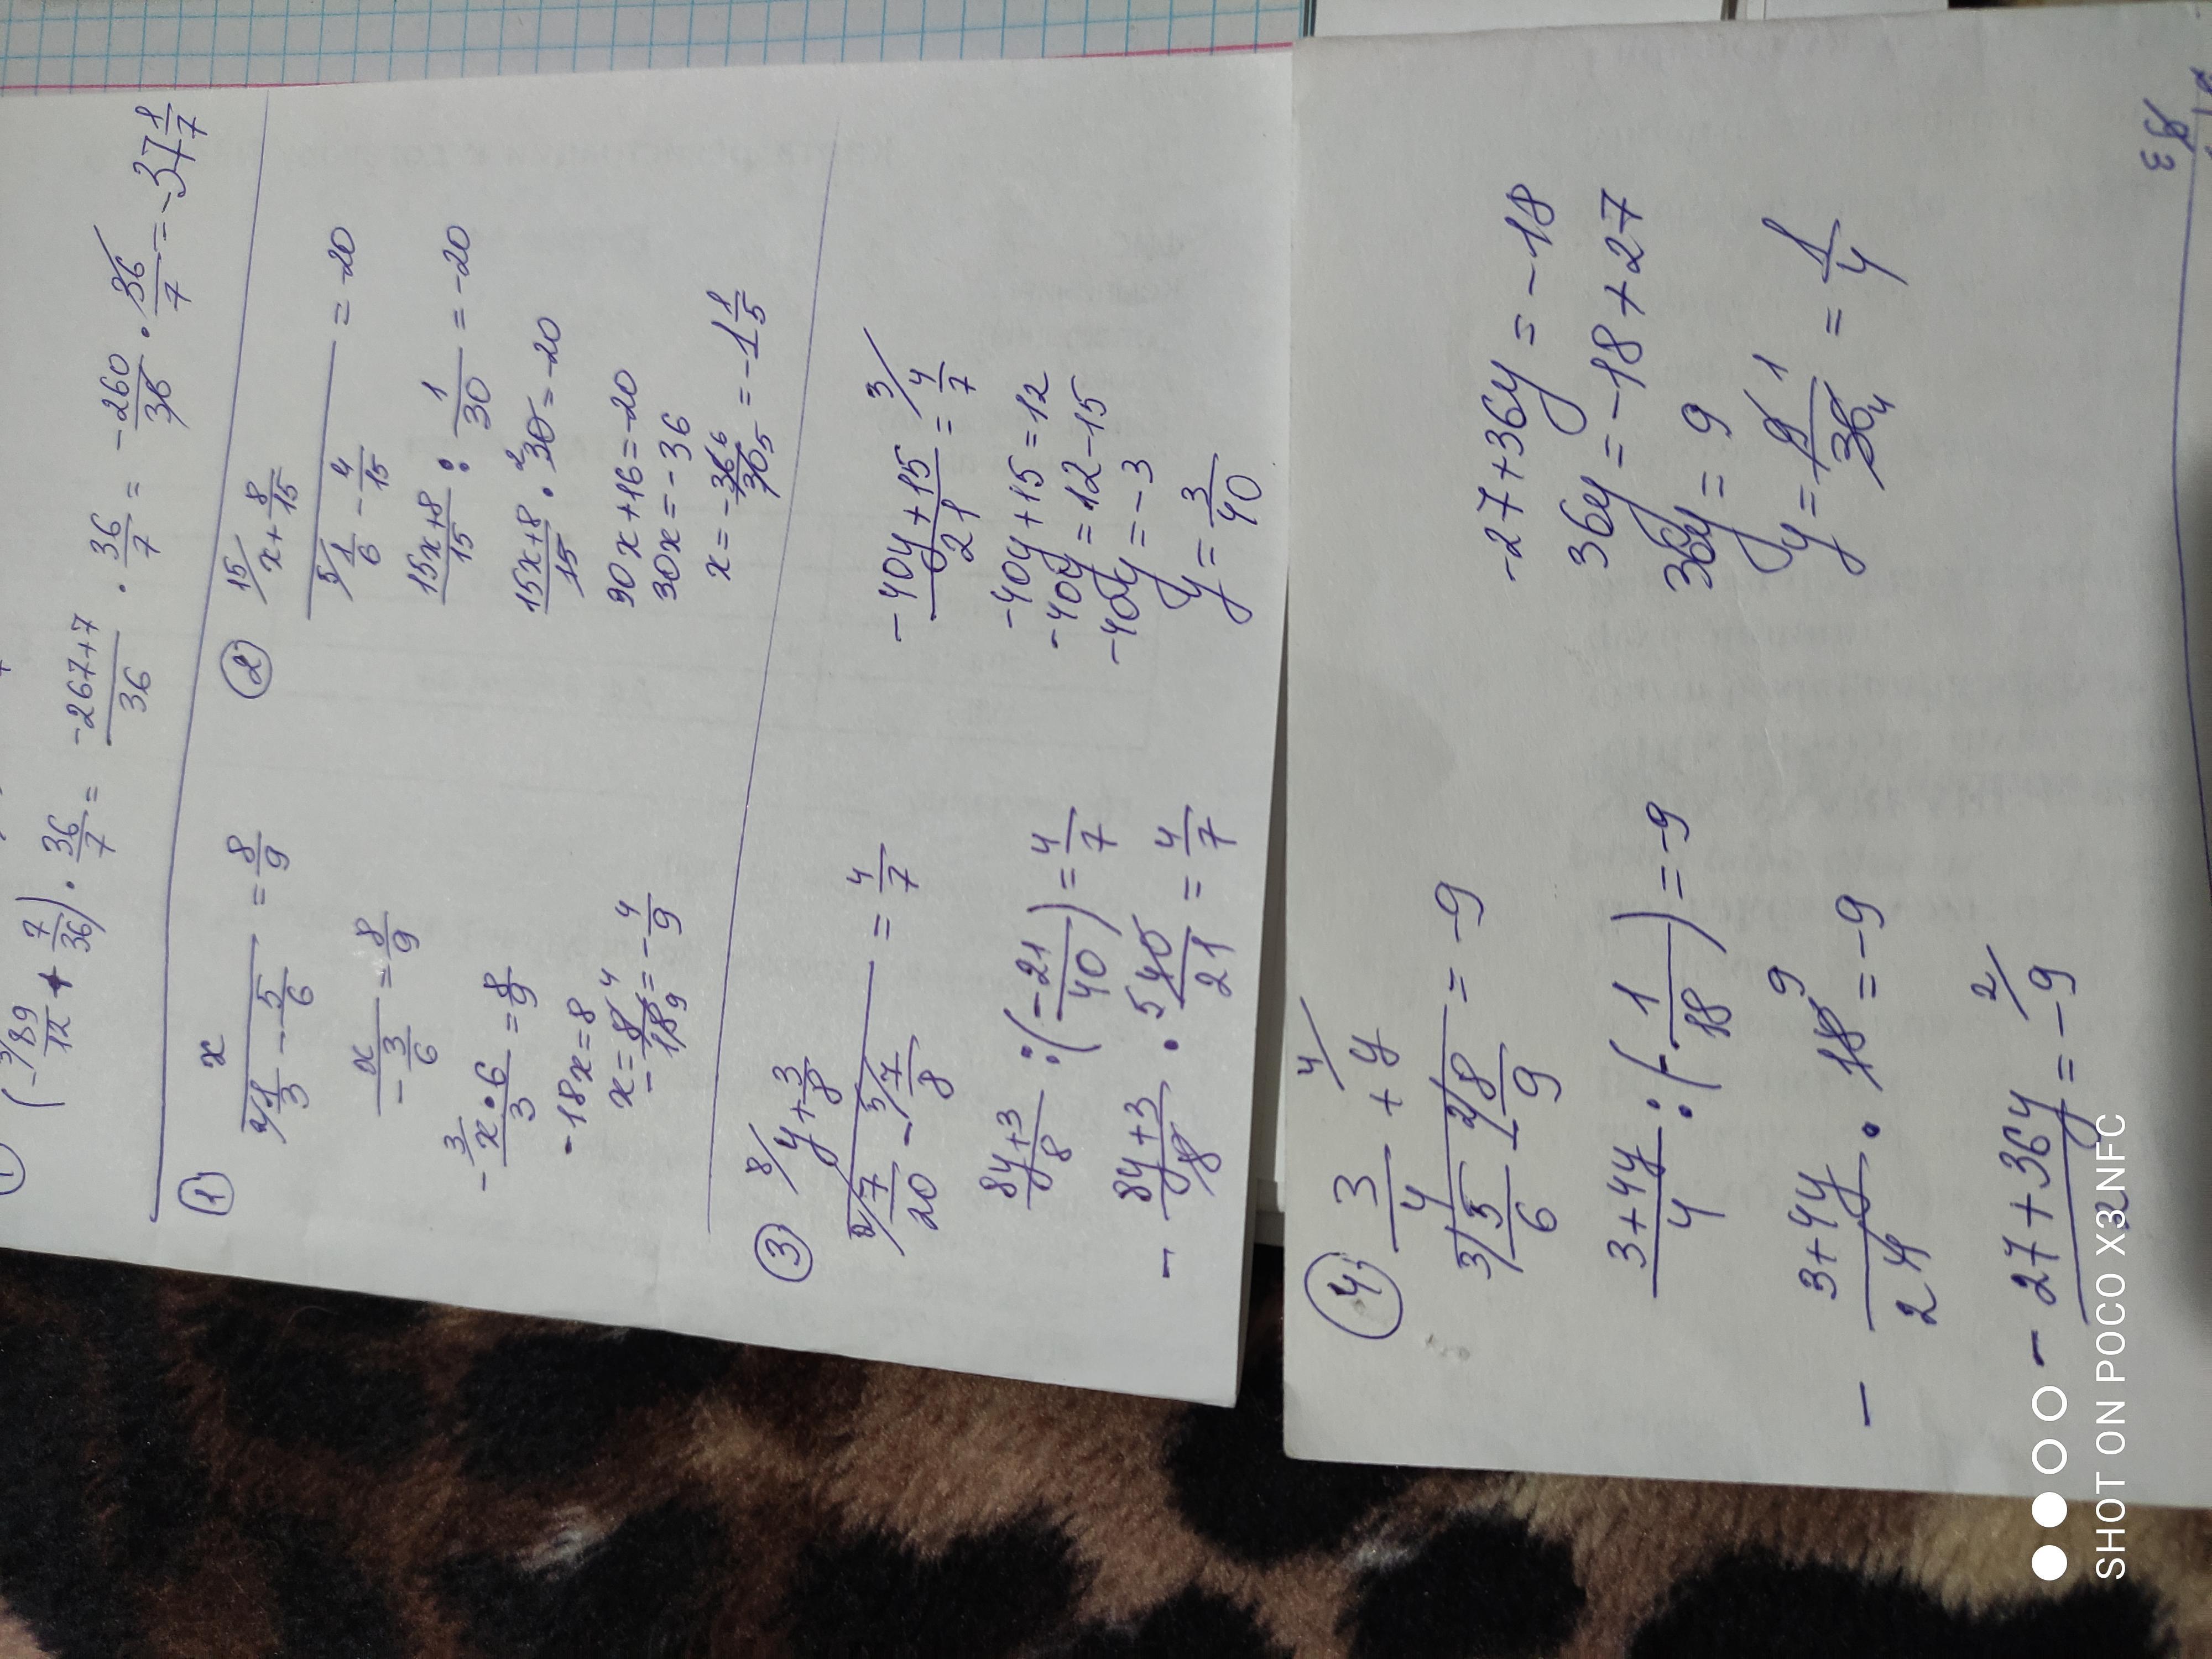 (-³/89/12 + 7/36) · 36/7 = -267+7/36 · 36/7 = -260/36 · 36/7 = -37 1/7
① x / (²/1/3 - 5/6) = 8/9
x / -3/6 = 8/9
- 3/x·6/3 = 8/9
-18x = 8
x = -8⁴/18₉ = -4/9
② ¹⁵/x + 8/15 / (⁵/1/6 - 4/15) = -20
15x+8/15 : 1/30 = -20
15x+8/15 · ²30 = -20
30x+16 = -20
30x = -36
x = -36⁶/30₅ = -1 1/5
③ ⁸/y + 3/8 / (²/7/20 - ⁵/7/8) = 4/7
8y+3/8 : (-21/40) = 4/7
- 8y+3/8 · ⁵40/21 = 4/7
- 40y+15/21 = ³/4/7
-40y+15 = 12
-40y = 12-15
-40y = -3
y = 3/40
④ 3/4 + ⁴/y / (³/5/6 - ²/8/9) = -9
3+4y/4 : (-1/18) = -9
- 3+4y/₂4 · 18⁹ = -9
- 27+36y/2 = ²/-9
-27+36y = -18
36y = -18+27
36y = 9
y = 9¹/36₄ = 1/4
SHOT ON POCO X3 NFC